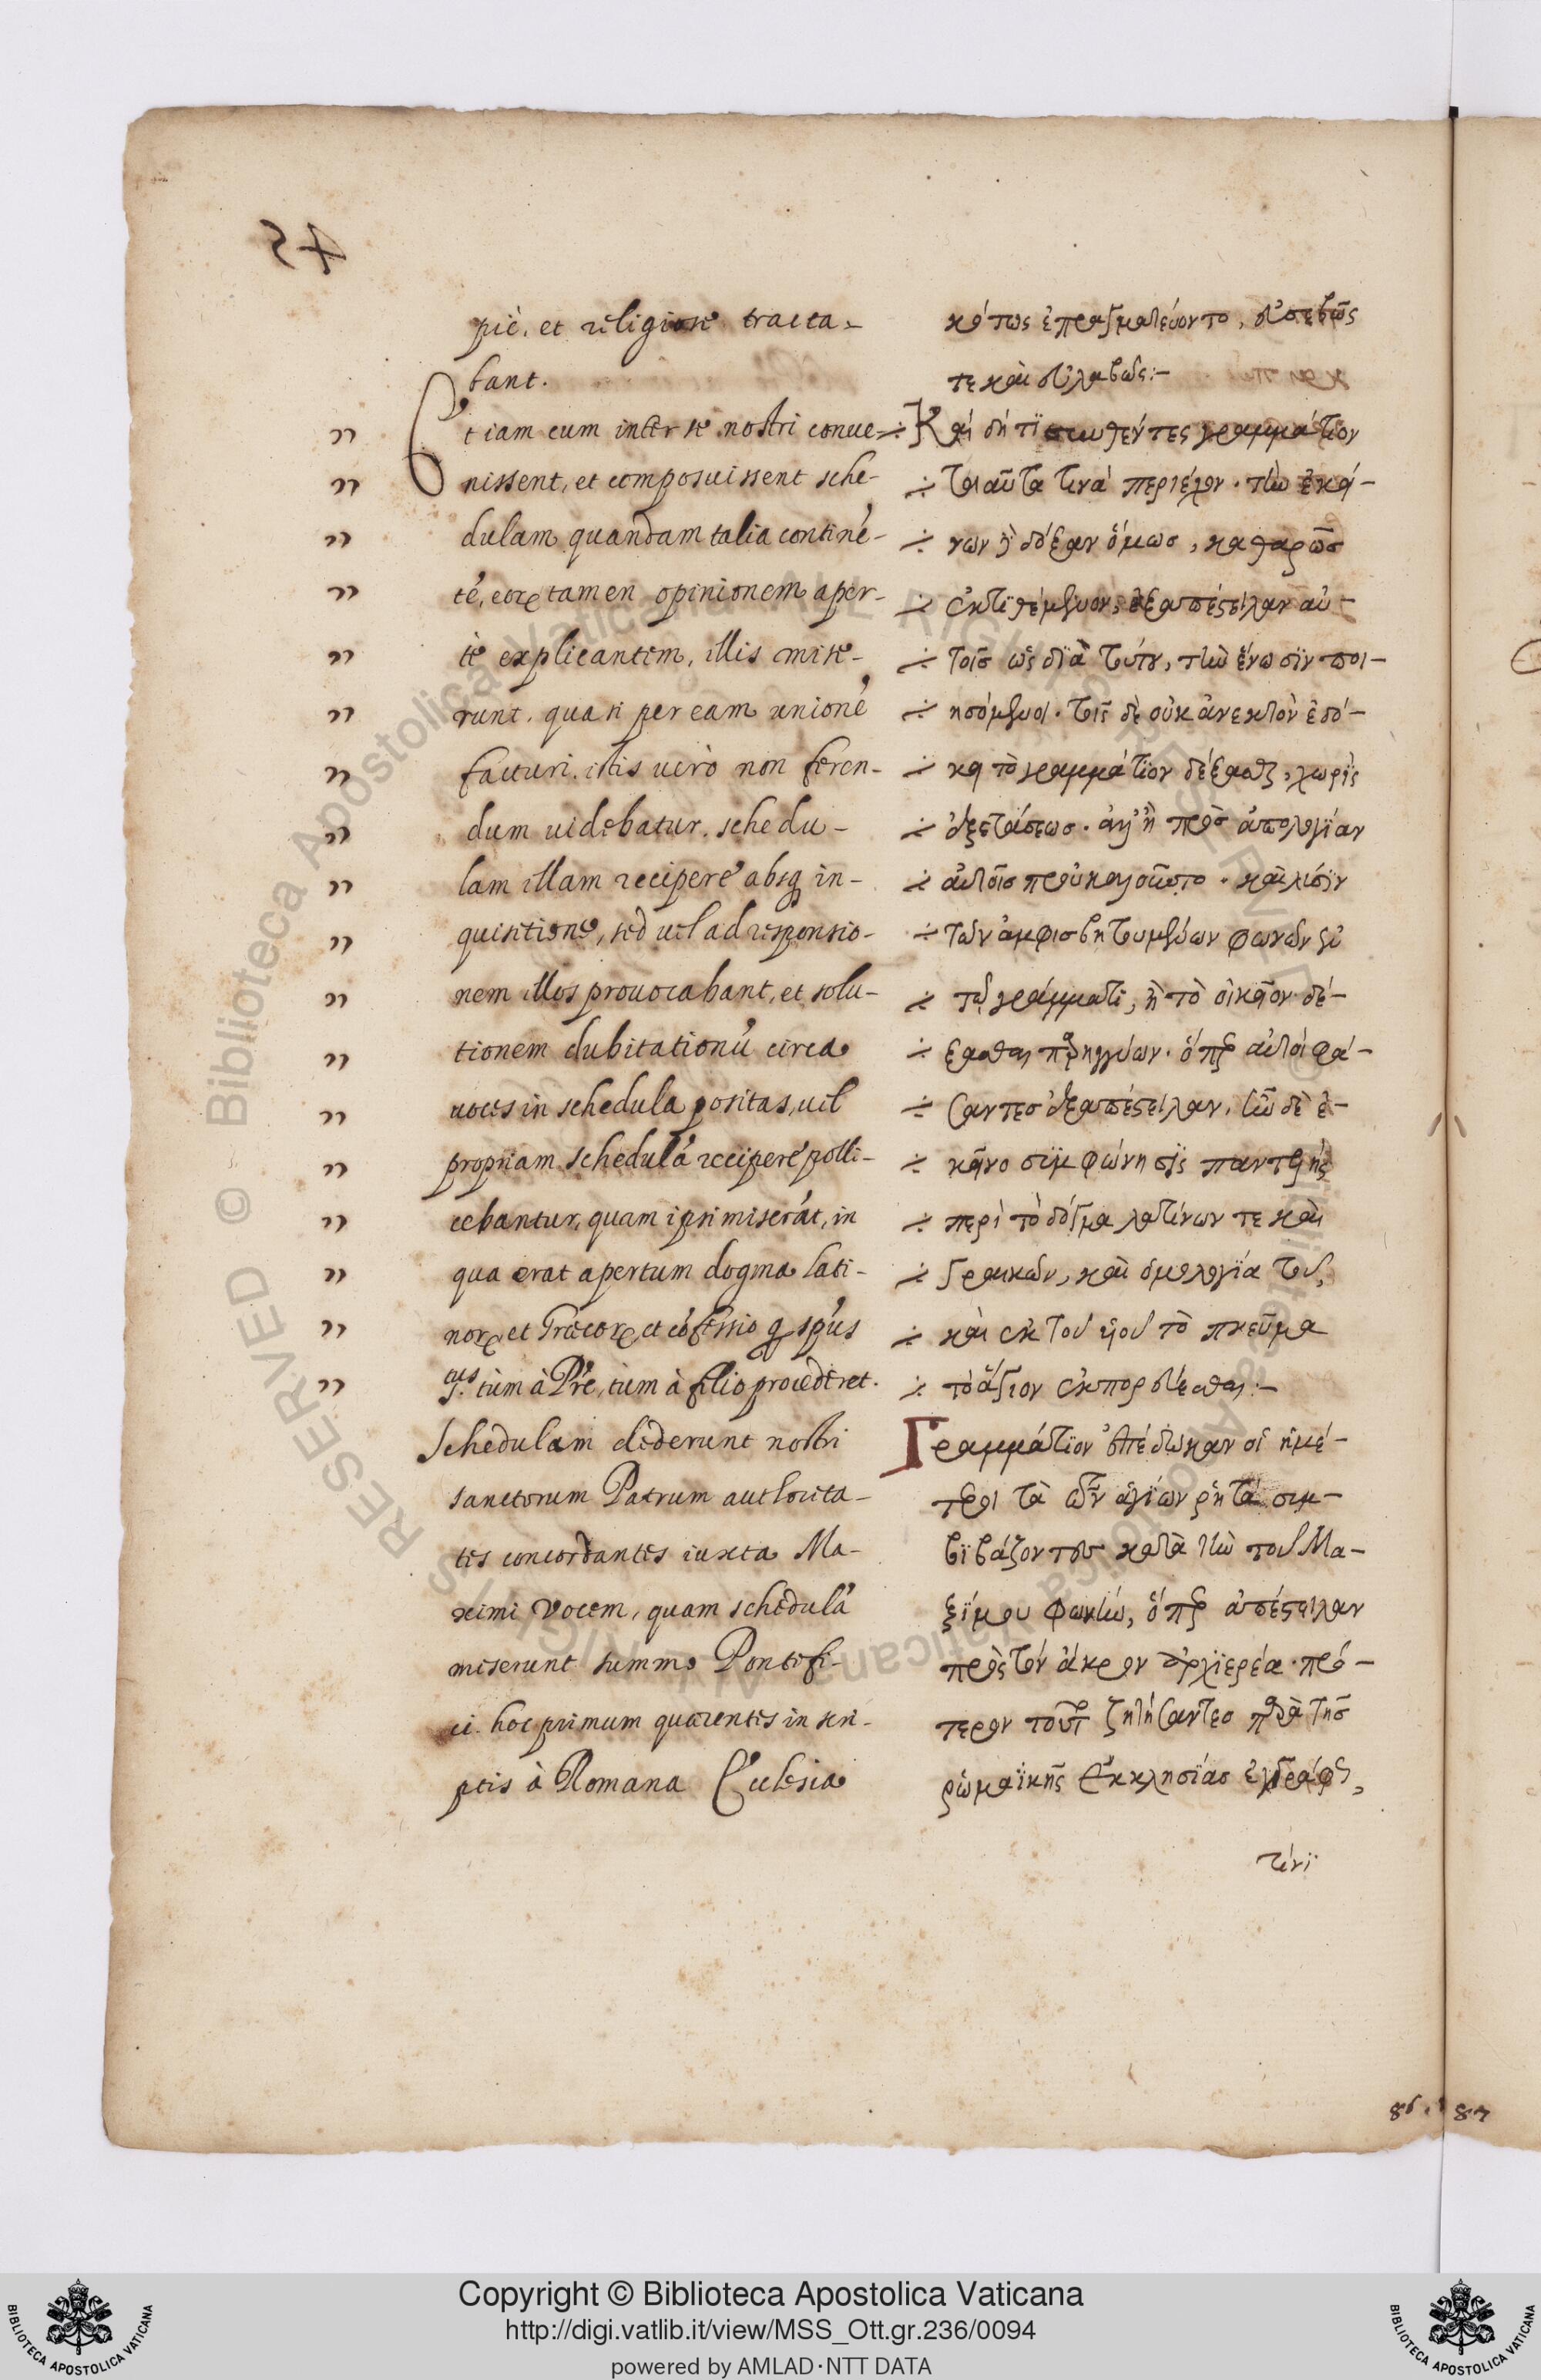 45
piè, et religiose tracta-
bant.
Etiam cum inter se nostri conue-
nissent, et composuissent sche-
dulam quandam talia continē-
tē, eorꝝ tamen opinionem aper-
te explicantem, illis mise-
runt, quasi per eam unionē
facturi. illis uerò non feren-
dum uidebatur, schedu-
lam illam recipere absqꝫ in-
quisitione, sed uel ad responsio-
nem illos prouocabant, et solu-
tionem dubitationū circa
uoces in schedula positas, uel
propriam schedulā recipere polli-
cebantur, quam ipsi miserāt, in
qua erat apertum dogma lati-
norꝝ et Græcorꝝ et cōfessio qꝫ spūs
s.ctus tùm à Pr̄e, tùm à filio procederet.
Schedulam dederunt nostri
sanctorum Patrum authorita-
tes concordantes iuxta Ma-
ximi vocem, quam schedulā
miserunt summo Pontifi-
ci. hoc primum quærentes in scri-
ptis à Romana Ecclesia
κότως ἐπραγματεύοντο, εὐσεβῶς
τε καὶ εὐλαβῶς:-
Καὶ δή τι γραμμάτϊον
τοιαῦτα τινὰ περιέχον. τὴν ἐκεί-
νων δόξαν ὅμωσ, καθαρῶσ
ἐκτϊθέμενον, ἐξαπέστειλαν αὐ-
τοῖσ ὡς δϊὰ τούτου, τὴν ἕνωσϊν ποι-
ησόμενοι. τοῖς δὲ οὐκ ἀνεκτὸν ἐδό-
κει τὸ γραμμάτϊον δέξασθαι, χωρὶς
ἐξετάσεωσ. ἀλλ' ἢ πρὸσ ἀπολογίαν
αὐτοῖσ προὐκαλοῦντο. καὶ λύσϊν
τῶν ἀμφισβητουμένων φωνῶν ἐν
τῷ γράμματι, ἢ τὸ οἰκεῖον δέ-
ξασθαι παρηγγύων. ὅπερ αὐτοὶ φθά-
σαντεσ ἐξαπέστειλαν, ἦν δὲ ἐ-
κεῖνο συμφώνησϊς παντελὴς
περὶ τὸ δόγμα λατίνων τε καὶ
Γραικῶν, καὶ ὁμολογία τοῦ,
καὶ ἐκ τοῦ υἱοῦ τὸ πνεῦμα
τὸ ἅγιον ἐκπορεύεσθαι:-
Γραμμάτϊον ἐπέδωκαν οἱ ἡμέ-
τεροι τὰ τῶν ἁγίων ῥητὰ συμ-
βϊβάζοντεσ κατὰ τὴν τοῦ Μα-
ξίμου φωνὴν, ὅπερ ἀπέστειλαν
πρὸς τὸν ἄκρον ἀρχϊερέα. πρό-
τερον τοῦτο ζητήσαντεσ παρὰ τῆσ
ῥωμαϊκῆς ἐκκλησίασ ἐγγράφως,
τίνϊ
86.
87
© Biblioteca Apostolica Vaticana ALL RIGHTS RESERVED © Biblioteca Apostolica Vaticana ALL RIGHTS RESERVED
Copyright © Biblioteca Apostolica Vaticana
http://digi.vatlib.it/view/MSS_Ott.gr.236/0094
powered by AMLAD·NTT DATA
BIBLIOTECA APOSTOLICA VATICANA
BIBLIOTECA APOSTOLICA VATICANA